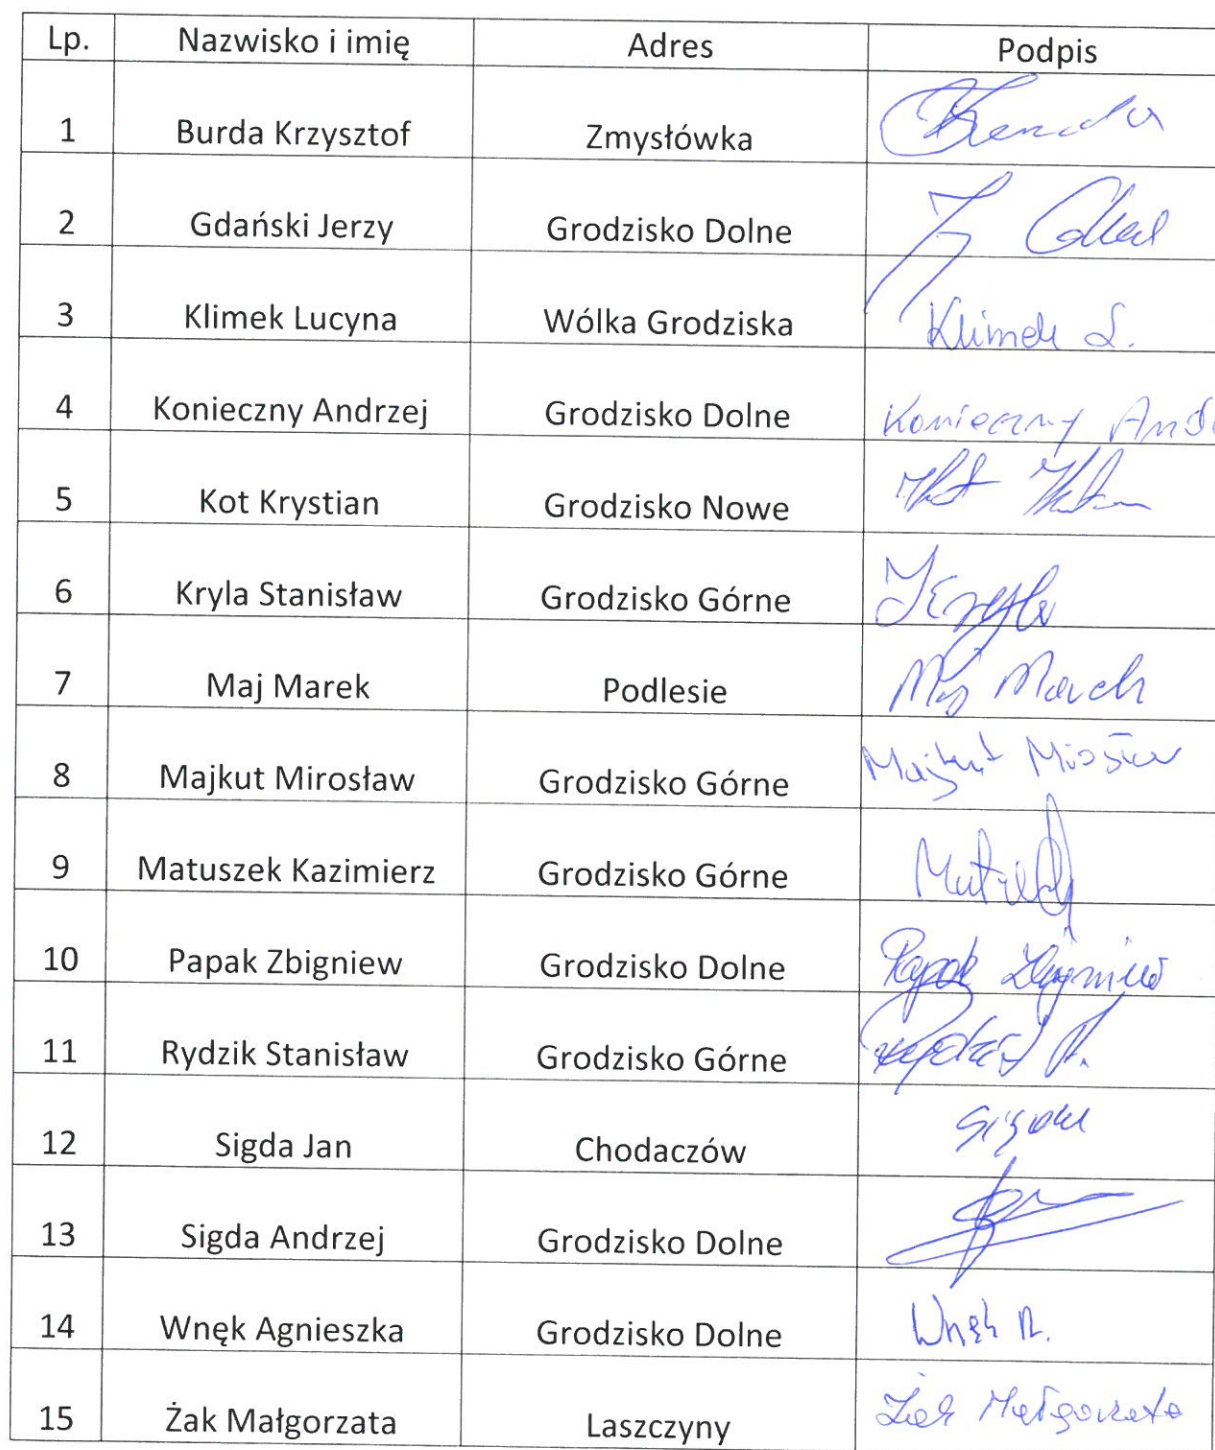 Lp. Nazwisko i imię Adres Podpis
1 Burda Krzysztof Zmysłówka
2 Gdański Jerzy Grodzisko Dolne
3 Klimek Lucyna Wólka Grodziska Klimek L.
4 Konieczny Andrzej Grodzisko Dolne Konieczny
5 Kot Krystian Grodzisko Nowe Kot
6 Kryla Stanisław Grodzisko Górne Kryla
7 Maj Marek Podlesie Maj Marek
8 Majkut Mirosław Grodzisko Górne Majkut
9 Matuszek Kazimierz Grodzisko Górne
10 Papak Zbigniew Grodzisko Dolne Papak Zbigniew
11 Rydzik Stanisław Grodzisko Górne
12 Sigda Jan Chodaczów Sigda
13 Sigda Andrzej Grodzisko Dolne
14 Wnęk Agnieszka Grodzisko Dolne Wnęk A.
15 Żak Małgorzata Laszczyny Żak Małgorzata